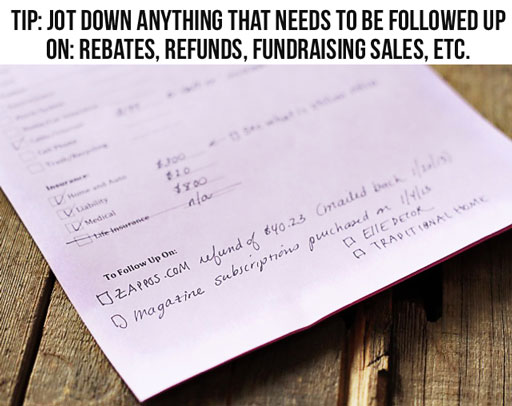 TIP: JOT DOWN ANYTHING THAT NEEDS TO BE FOLLOWED UP
ON: REBATES, REFUNDS, FUNDRAISING SALES, ETC.
Cell Phone
Trash/Recycling
Insurance:
Home and Auto $200
Liability $20
Medical $800
Life Insurance n/a
To Follow Up On:
ZAPPOS.COM refund of $40.23 (mailed back 1/20/13)
magazine subscriptions purchased on 1/9/13
ELLE DECOR
TRADITIONAL HOME